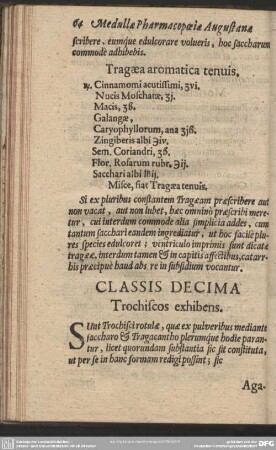 64 Medullæ Pharmacopœiæ Augustanæ
scribere, eumque edulcorare volueris, hoc saccharum
commodè adhibebis.
Tragæa aromatica tenuis.
℞. Cinnamomi acutissimi, ʒvj.
Nucis Moschatæ, ʒj.
Macis, ʒß.
Galangæ,
Caryophyllorum, ana ʒjß.
Zingiberis albi ℈iv.
Sem. Coriandri, ʒß.
Flor. Rosarum rubr. ℈ij.
Sacchari albi ℔ij.
Misce, fiat Tragæa tenuis.
Si ex pluribus constantem Tragæam præscribere aut
non vacat, aut non lubet, hæc omninò præscribi mere-
tur, cui interdum commodè alia simplicia addes, cum
tantum sacchari eandem ingrediatur, ut hoc facilè plu-
res species edulcoret; ventriculo imprimis sunt dicatæ
tragææ, interdum tamen & in capitis affectibus, catar-
rhis præcipuè haud ab re in subsidium vocantur.
CLASSIS DECIMA
Trochiscos exhibens.
SUnt Trochisci rotulæ, quæ ex pulveribus mediante
saccharo & Tragacantho plerumque hodie paran-
tur, licet quorundam substantia sic sit constituta,
ut per se in hanc formam redigi possint; sic
Aga-